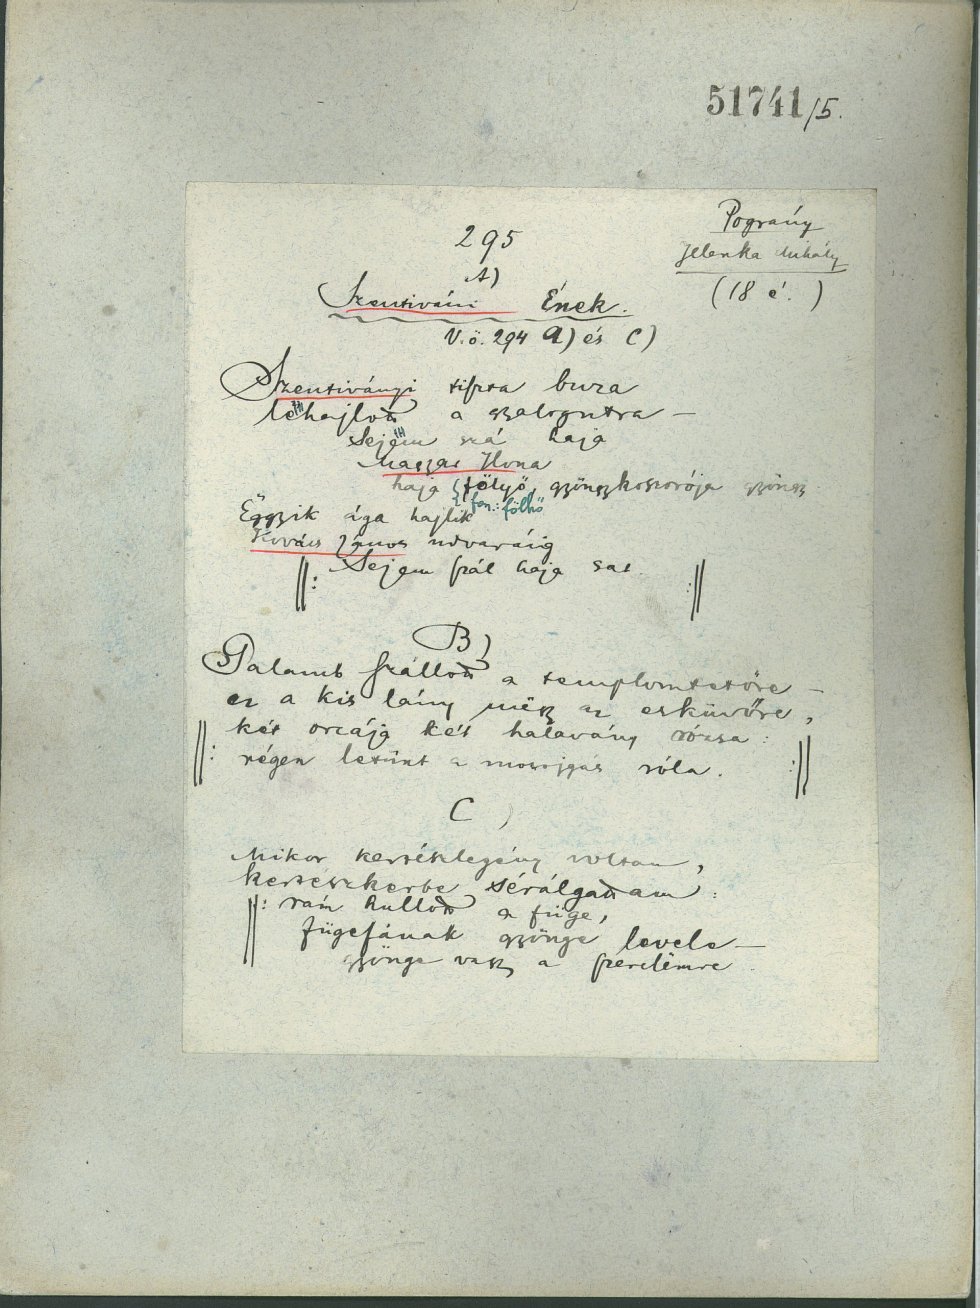 51741/5.
Pográny
Jelenka Mihály
(18 é.)
295
A)
Szentiváni Ének.
V.ö. 294 a) és C)
Szentiványi tiszta buza
lehajlott a szalonutra –
Sejem szá haja
Magyar Ilona
haja fölyő, gyöngykoszorója gyöngy
fon.: fölhő
Eggyik ága hajlik
Kovács János udvaráig
||: Sejem szál haja sat :||
B)
Galamb szállott a templomtetőre –
ez a kis lány mëgy az esküvőre,
||: két orcája két halavány rózsa :
régen letünt a mosojgás róla. :||
C)
Mikor kertészlegény voltam,
kertészkerbe sétálgattam :
||: rám hullott a füge,
fügefának gyönge levele –
gyönge vagy a szerelëmre